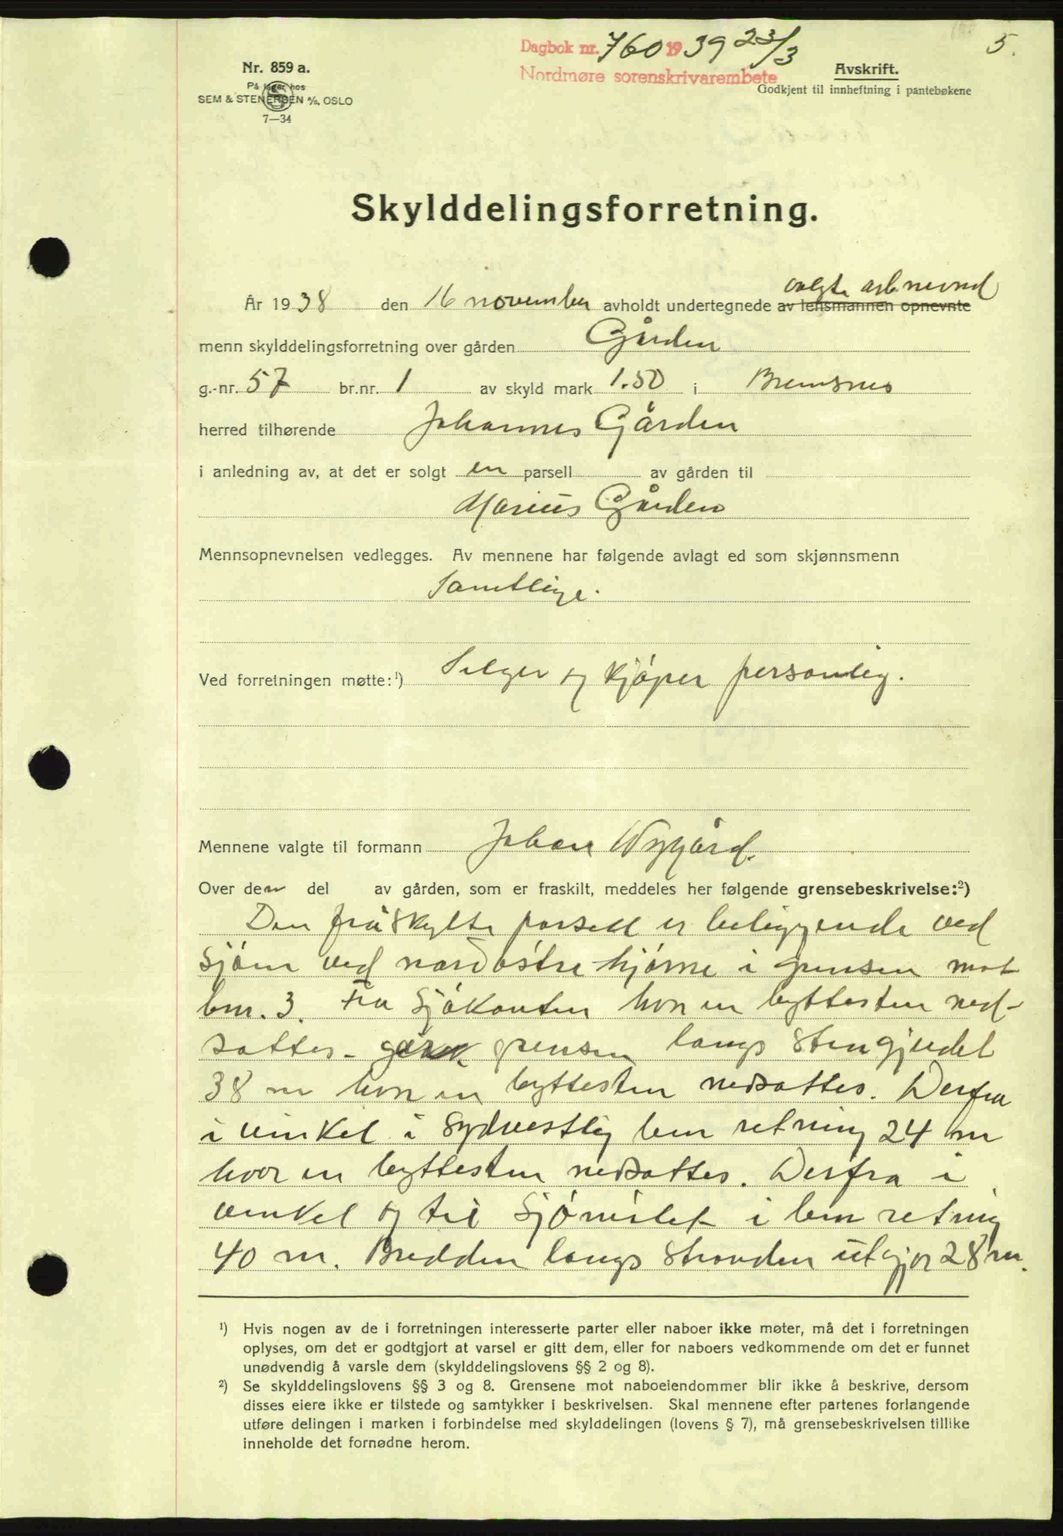 5.
Dagbok nr. 760 1939 23/3
Nordmøre sorenskrivarembete
Nr. 859 a.
På lager hos
SEM & STENERSEN A/S, OSLO
7—34
Avskrift.
Godkjent til innheftning i pantebøkene
Skylddelingsforretning.
valgte arb.nevnd
År 1938 den 16 november avholdt undertegnede av lensmannen opnevnte
menn skylddelingsforretning over gården Gården
g.-nr. 57 br.nr. 1 av skyld mark 1.50 i Bremsnes
herred tilhørende Johannes Gården
i anledning av, at det er solgt en parsell av gården til
Marius Gården
Mennsopnevnelsen vedlegges. Av mennene har følgende avlagt ed som skjønnsmenn
Samtlige.
Ved forretningen møtte:¹) Selger og kjøper personlig.
Mennene valgte til formann Johan Nygård.
Over den del av gården, som er fraskilt, meddeles her følgende grensebeskrivelse:²)
Den fråskylte parsell er beliggende ved
Sjøen ved nordøstre hjørne i grensen mot
bnr. 3. Fra Sjøkanten hvor en byttesten ned-
sattes grensen langs stengjerdet
38 m hvor en byttesten nedsattes. Derfra
i vinkel i Sydvestlig retning 24 m
hvor en byttesten nedsattes. Derfra i
vinkel og til Sjøen i retning
40 m. Bredden langs stranden utgjør 28 m.
¹) Hvis nogen av de i forretningen interesserte parter eller naboer ikke møter, må det i forretningen
oplyses, om det er godtgjort at varsel er gitt dem, eller for naboers vedkommende om det er funnet
unødvendig å varsle dem (skylddelingslovens §§ 2 og 8).
²) Se skylddelingslovens §§ 3 og 8. Grensene mot naboeiendommer blir ikke å beskrive, dersom
disses eiere ikke er tilstede og samtykker i beskrivelsen. Skal mennene efter partenes forlangende
utføre delingen i marken i forbindelse med skylddelingen (lovens § 7), må grensebeskrivelsen tillike
inneholde det fornødne herom.